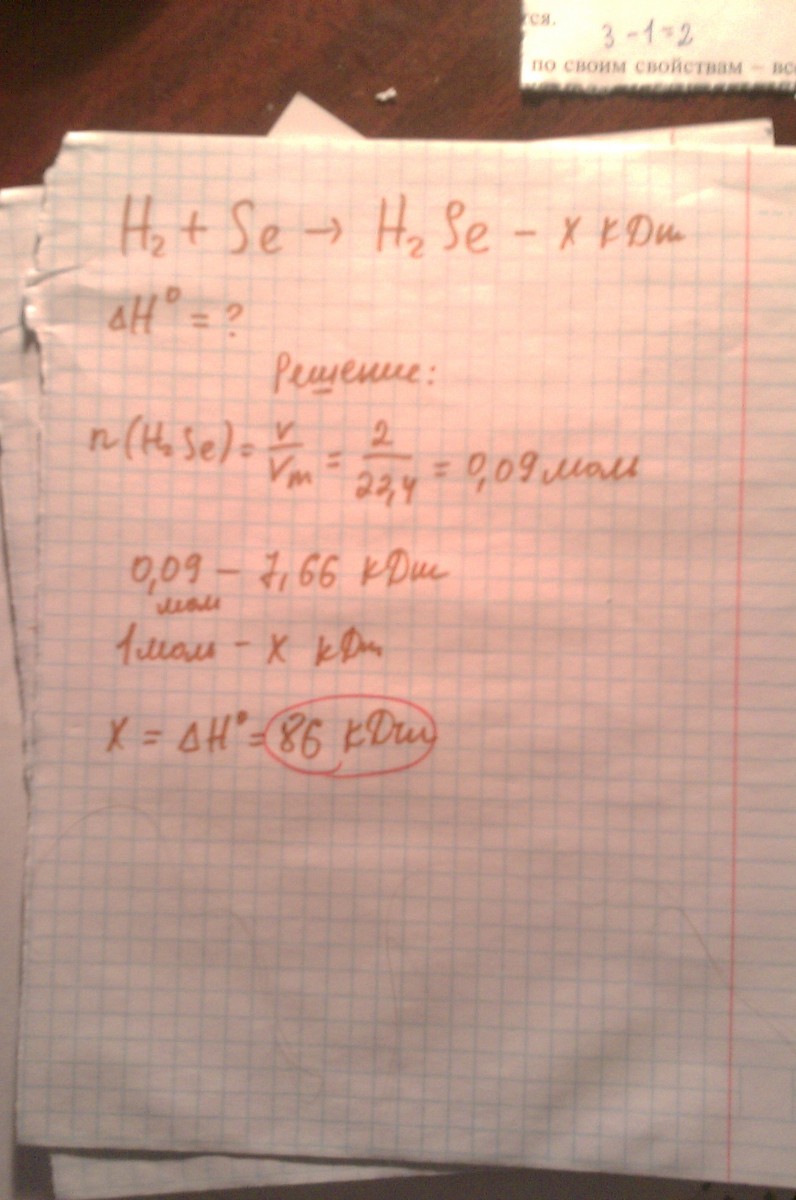 тся.
3 - 1 = 2
по своим свойствам – все
H₂ + Se → H₂Se - x кДж
ΔH⁰ = ?
Решение:
n(H₂Se) = V/Vm = 2/22,4 = 0,09 моль
0,09 моль - 7,66 кДж
1 моль - x кДж
x = ΔH⁰ = 86 кДж